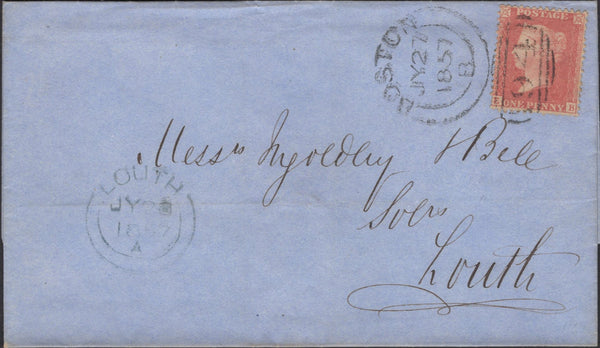 BOSTON
JY 27
1857
B
POSTAGE
ONE PENNY
E B
Messrs Ingoldby & Bell
Solrs
Louth
LOUTH
JY 28
1857
A